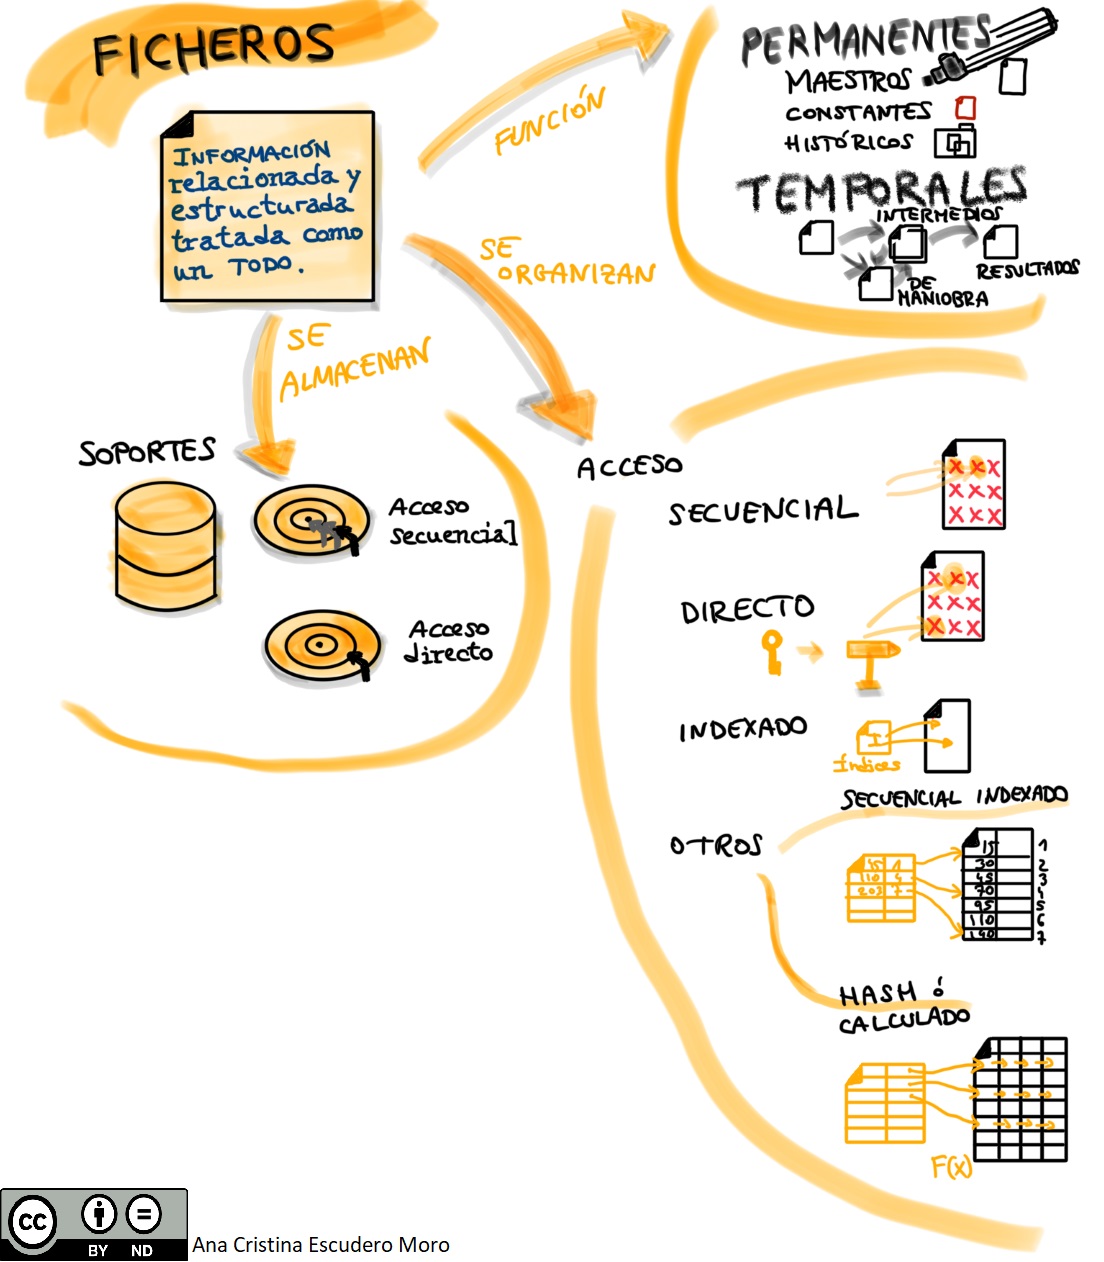 FICHEROS
INFORMACIÓN
relacionada y
estructurada
tratada como
un TODO.
FUNCIÓN
PERMANENTES
MAESTROS
CONSTANTES
HISTÓRICOS
TEMPORALES
INTERMEDIOS
RESULTADOS
DE
MANIOBRA
SE
ORGANIZAN
SE
ALMACENAN
SOPORTES
Acceso
secuencial
Acceso
directo
ACCESO
SECUENCIAL
X X X
X X X
X X X
DIRECTO
X X X
X X X
X X X
INDEXADO
I
Índices
OTROS
SECUENCIAL INDEXADO
45 1
110 4
203 7
15 1
30 2
45 3
70 4
95 5
110 6
140 7
HASH ó
CALCULADO
F(x)
CC
BY ND
Ana Cristina Escudero Moro